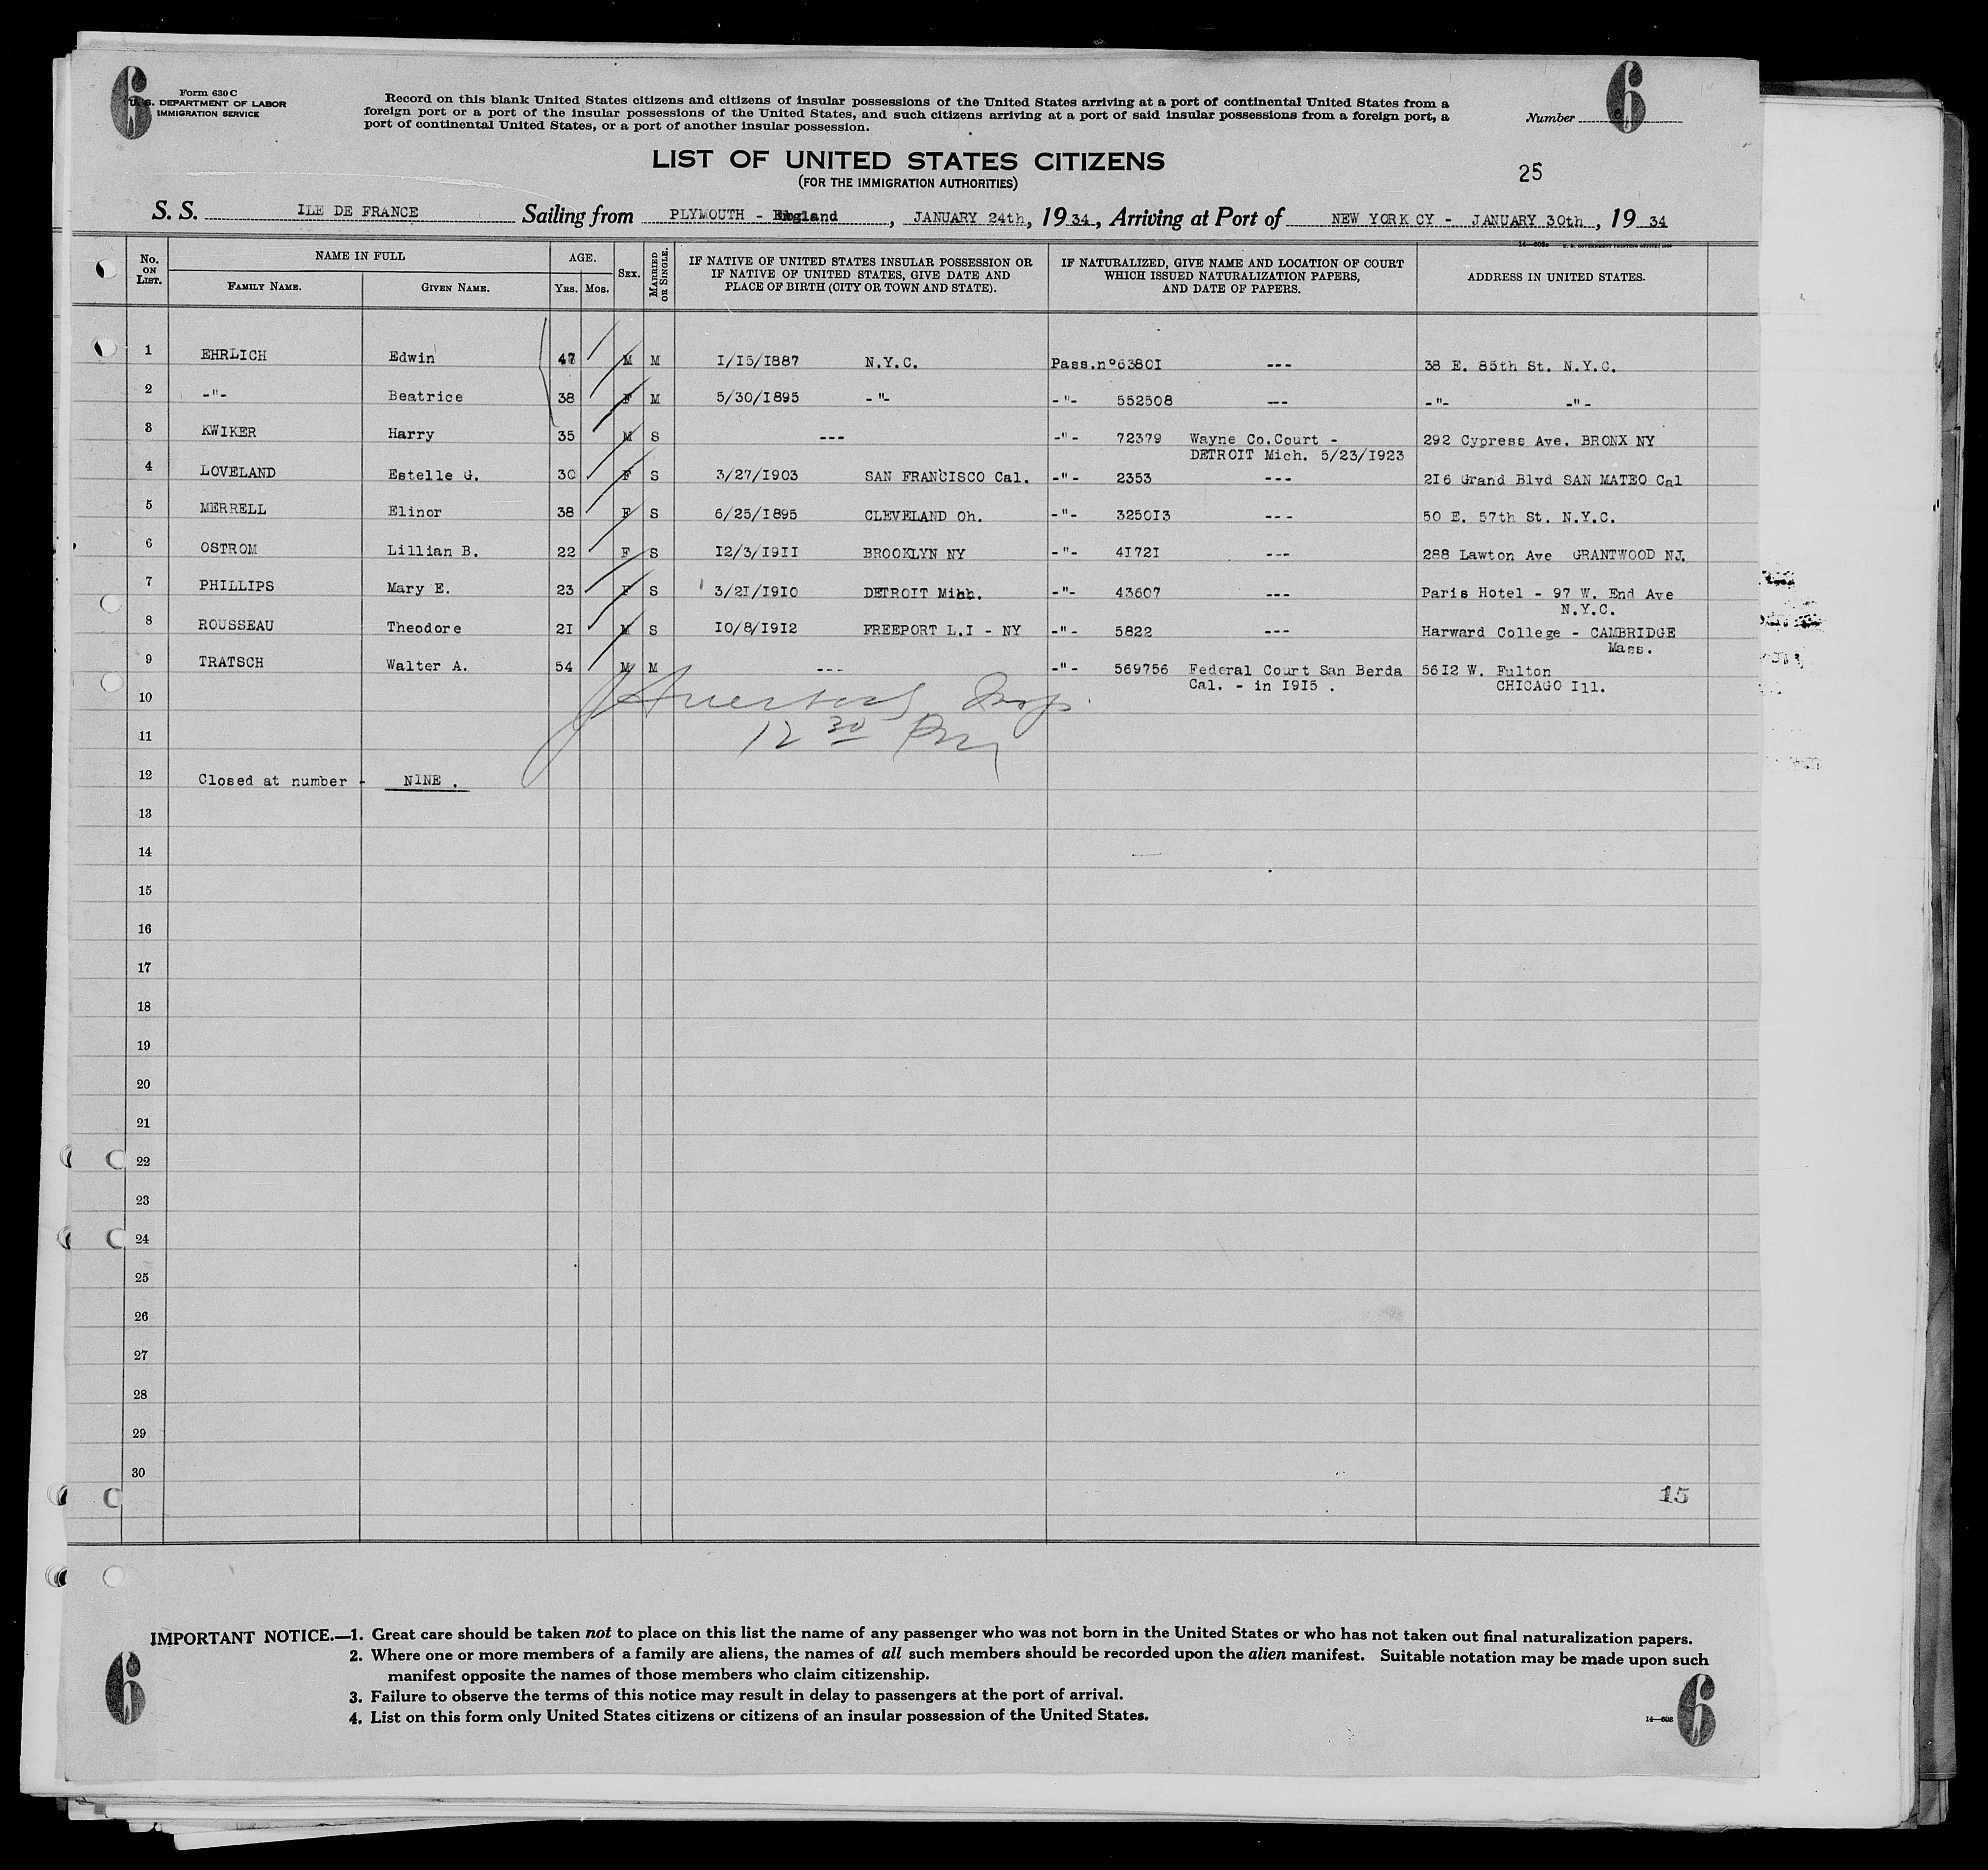 6 6
Form 630 C
U. S. DEPARTMENT OF LABOR
IMMIGRATION SERVICE
Record on this blank United States citizens and citizens of insular possessions of the United States arriving at a port of continental United States from a
foreign port or a port of the insular possessions of the United States, and such citizens arriving at a port of said insular possessions from a foreign port, a
port of continental United States, or a port of another insular possession.
Number
LIST OF UNITED STATES CITIZENS
(FOR THE IMMIGRATION AUTHORITIES)
25
S. S. ILE DE FRANCE Sailing from PLYMOUTH - England, JANUARY 24th, 19 34, Arriving at Port of NEW YORK CY - JANUARY 30th, 19 34
No. ON LIST. NAME IN FULL FAMILY NAME. GIVEN NAME. AGE. YRS. MOS. SEX. MARRIED OR SINGLE. IF NATIVE OF UNITED STATES INSULAR POSSESSION OR IF NATIVE OF UNITED STATES, GIVE DATE AND PLACE OF BIRTH (CITY OR TOWN AND STATE). IF NATURALIZED, GIVE NAME AND LOCATION OF COURT WHICH ISSUED NATURALIZATION PAPERS, AND DATE OF PAPERS. ADDRESS IN UNITED STATES.
1 EHRLICH Edwin 47 M M 1/15/1887 N.Y.C. Pass.nº63801 --- 38 E. 85th St. N.Y.C.
2 -"- Beatrice 38 F M 5/30/1895 -"- -"- 552508 --- -"- -"-
3 KWIKER Harry 35 M S --- -"- 72379 Wayne Co.Court - 292 Cypress Ave. BRONX NY
DETROIT Mich. 5/23/1923
4 LOVELAND Estelle G. 30 F S 3/27/1903 SAN FRANCISCO Cal. -"- 2353 --- 216 Grand Blvd SAN MATEO Cal
5 MERRELL Elinor 38 F S 6/25/1895 CLEVELAND Oh. -"- 325013 --- 50 E. 57th St. N.Y.C.
6 OSTROM Lillian B. 22 F S 12/3/1911 BROOKLYN NY -"- 41721 --- 288 Lawton Ave GRANTWOOD NJ.
7 PHILLIPS Mary E. 23 F S 3/21/1910 DETROIT Mihh. -"- 43607 --- Paris Hotel - 97 W. End Ave
N.Y.C.
8 ROUSSEAU Theodore 21 M S 10/8/1912 FREEPORT L.I - NY -"- 5822 --- Harward College - CAMBRIDGE
Mass.
9 TRATSCH Walter A. 54 M M --- -"- 569756 Federal Court San Berda 5612 W. Fulton
Cal. - in 1915 . CHICAGO Ill.
10
Insp.
11
12 30 Pm
12 Closed at number - NINE .
13
14
15
16
17
18
19
20
21
22
23
24
25
26
27
28
29
30
15
IMPORTANT NOTICE.—1. Great care should be taken not to place on this list the name of any passenger who was not born in the United States or who has not taken out final naturalization papers.
2. Where one or more members of a family are aliens, the names of all such members should be recorded upon the alien manifest. Suitable notation may be made upon such
manifest opposite the names of those members who claim citizenship.
3. Failure to observe the terms of this notice may result in delay to passengers at the port of arrival.
4. List on this form only United States citizens or citizens of an insular possession of the United States.
14—608
6 6